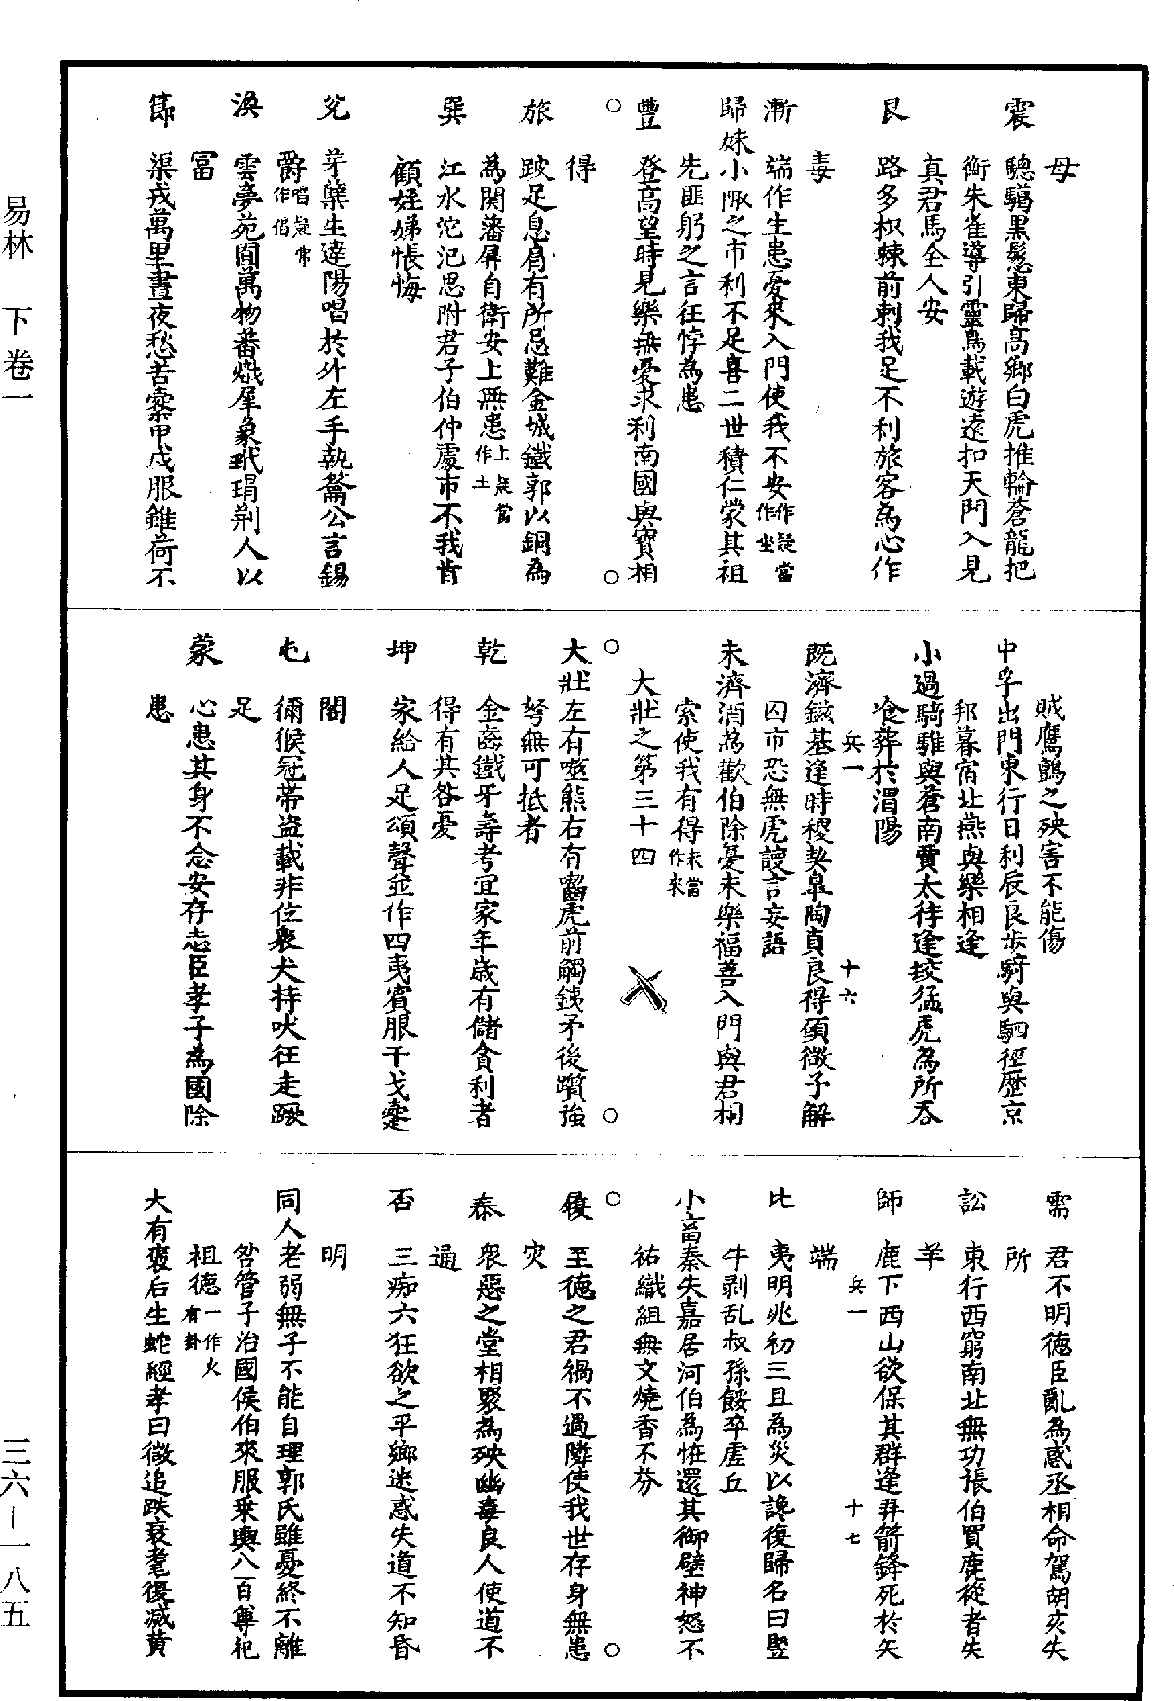 母
震　驄驪黑鬃東歸高鄉白虎推輪蒼龍把
衡朱雀導引靈鳥載遊遠扣天門入見
真君馬全人安
艮　路多枳棘前刺我足不利旅客為心作
毒
漸　端作生患憂來入門使我不安作疑當作坐
歸妹小陬之市利不足喜二世積仁蒙其祖
先匪躬之言狂悖為患
豐　登高望時見樂無憂求利南國與寶相
得
旅　跛足息肩有所忌難金城鐵郭以銅為
為關藩屏自衛安上無患上疑當作土
巽　江水沱汜思附君子伯仲處市不我肯
顧姪娣悵悔
兌　芽蘗生達陽唱於外左手執籥公言錫
爵唱疑常作倡
渙　雲夢苑囿萬物蕃熾犀象玳瑁荊人以
富
節　渠戎萬里晝夜愁苦橐甲戍服錐荷不
賊鷹鸇之殃害不能傷
中孚出門東行日利辰良步騎與駟徑歷京
邦暮宿北燕與樂相逢
小過騎騅與蒼南賈太待逢絞猛虎為所吞
喰葬於渭陽
兵一　十六
既濟鎡基逢時稷契皋陶貞良得頎微子解
囚市恐無虎謾言妄語
未濟消為歡伯除憂來樂福善入門與君相
索使我有得末當作來
大壯之第三十四
大壯左有噬熊右有齧虎前觸銕矛後躓強
弩無可抵者
乾　金齒鐵牙壽考宜家年歲有儲貪利者
得有其咎憂
坤　家給人足頌聲並作四夷賓服干戈櫜
閣
屯　獼猴冠帶盜載非位眾犬持吠狂走蹶
足
蒙　心患其身不念安存志臣孝子為國除
患
需　君不明德臣亂為惑丞相命駕胡亥失
所
訟　東行西窮南北無功張伯買鹿從者失
羊
師　鹿下西山欲保其群逢羿箭鋒死於矢
兵一　十七
端
比　夷明兆初三旦為災以讒復歸名曰豎
牛剥乱叔孫餒卒虛丘
小畜秦失嘉居河伯為怪還其御壁神怒不
祐織組無文燒香不芬
復　至德之君禍不過隣使我世存身無患
灾
泰　眾惡之堂相聚為殃幽毒良人使道不
通
否　三痴六狂欲之平鄉迷惑失道不知昏
明
同人老弱無子不能自理郭氏雖憂終不離
咎管子治國侯伯來服乘輿八百尊祀
祖德一作火有卦
大有褒后生蛇經孝曰微追跌衰耄復滅黃
易林　下卷一　三六－一八五